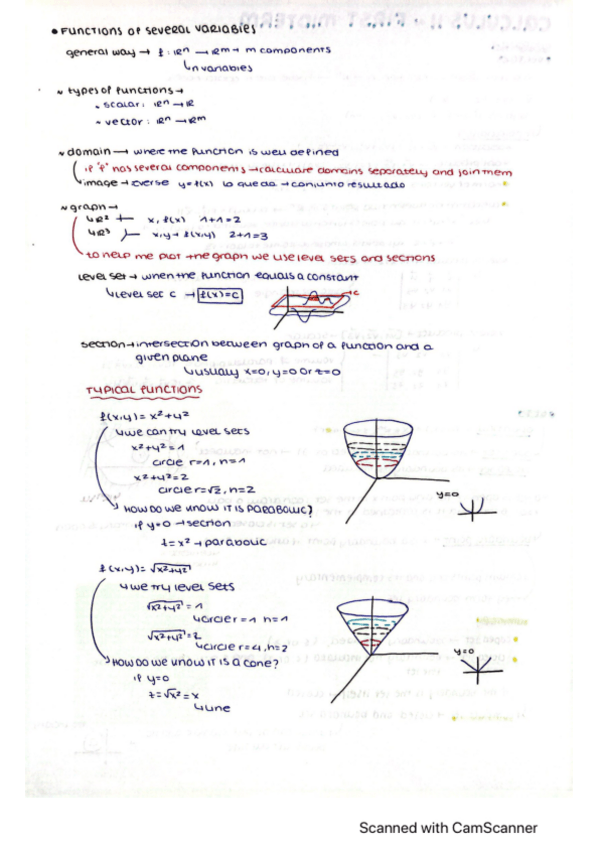 • FUNCTIONS OF SEVERAL VARIABLES
general way → f: ℝⁿ → ℝᵐ → m components
↳ n variables
~ types of functions →
~ scalar: ℝⁿ → ℝ
~ vector: ℝⁿ → ℝᵐ
~ domain → where the function is well defined
if "f" has several components → calculate domains separately and join them
image → y = f(x) lo que da → conjunto resultado
~ graph →
↳ ℝ² x, f(x) 1+1=2
↳ ℝ³ x,y → f(x,y) 2+1=3
to help me plot the graph we use level sets and sections
level set → when the function equals a constant
↳ level set c → f(x)=c
c
section → intersection between graph of a function and a
given plane
↳ usually x=0, y=0 or z=0
TYPICAL FUNCTIONS
f(x,y) = x²+y²
↳ we can try level sets
x²+y²=1
circle r=1, n=1
x²+y²=2
circle r=√2, n=2
y=0
HOW DO WE KNOW IT IS PARABOLIC?
if y=0 → section
z=x² → parabolic
f(x,y) = √x²+y²
↳ we try level sets
√x²+y² = 1
↳ circle r=1 n=1
√x²+y² = 2
↳ circle r=4, n=2
y=0
HOW DO WE KNOW IT IS A CONE?
if y=0
z=√x² = x
↳ line
Scanned with CamScanner